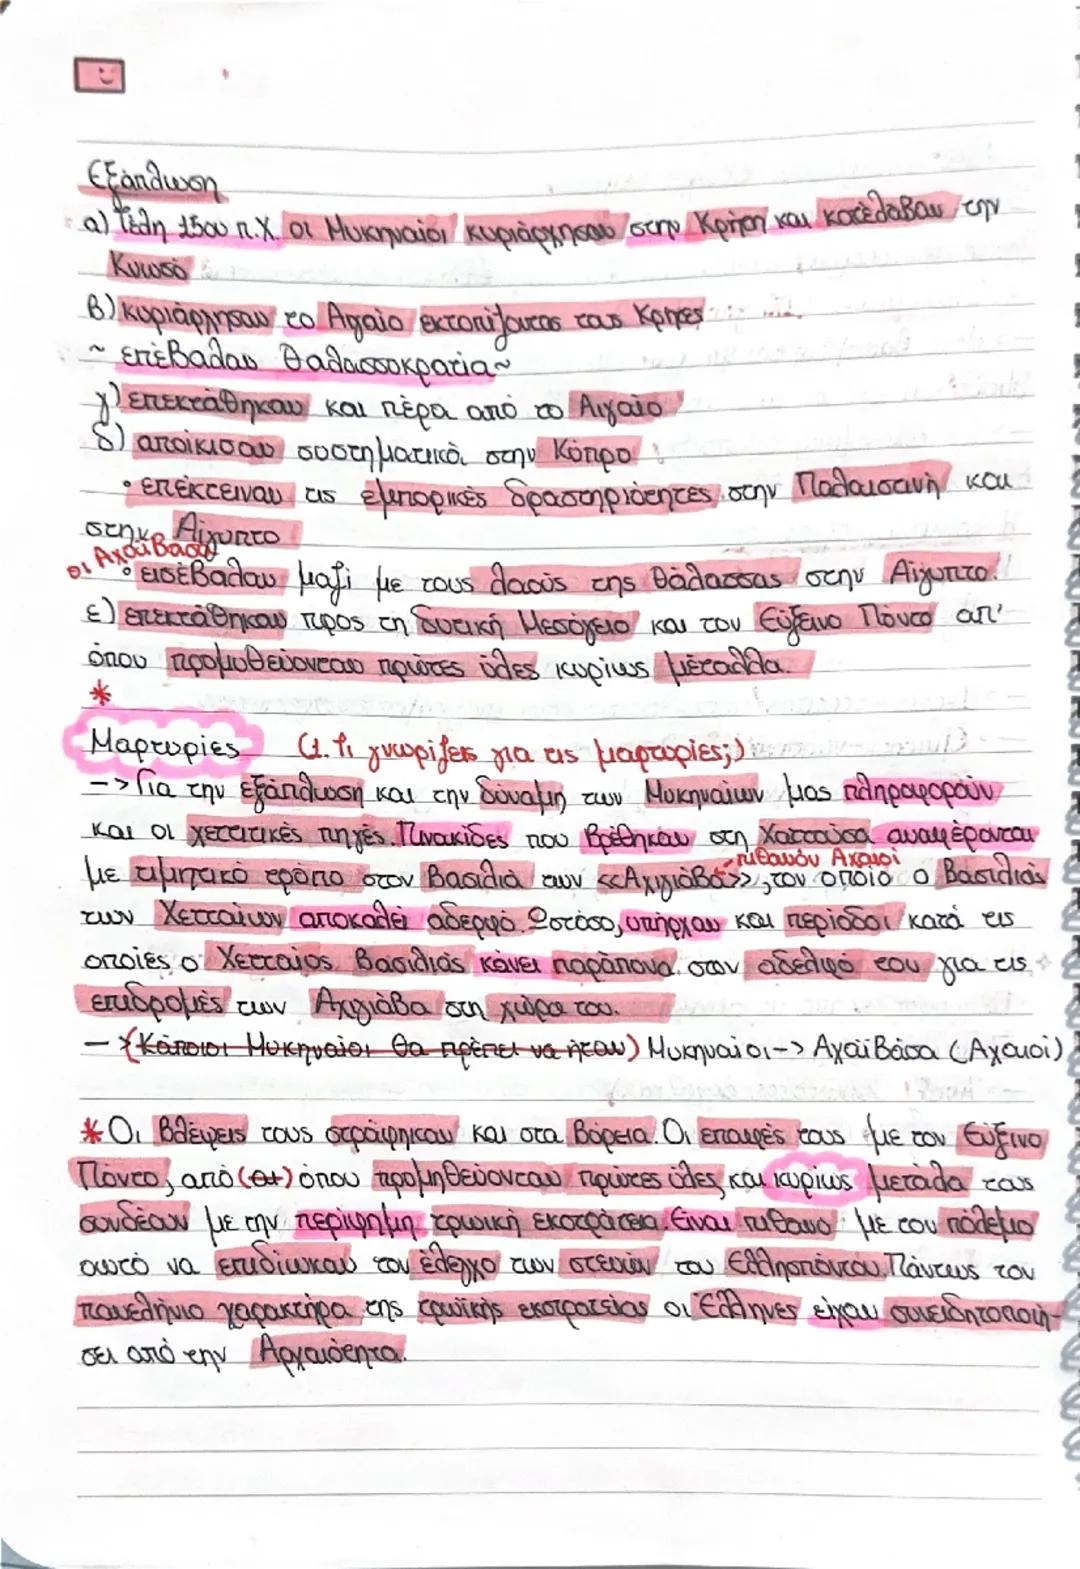 Εξάπλωση
α) Τέλη 15ου π.Χ. οι Μυκηναίοι κυριάρχησαν στην Κρήτη και κατέλαβαν την
Κνωσό
β) κυριάρχησαν το Αιγαίο εκτοπίζοντας τους Κρήτες
~ επέβαλαν θαλασσοκρατία ~
γ) επεκτάθηκαν και πέρα από το Αιγαίο
δ) αποίκισαν συστηματικά στην Κύπρο
• επέκτειναν τις εμπορικές δραστηριότητες στην Παλαιστινή και
στην Αίγυπτο
οι Αχαϊβάσα
• εισέβαλαν μαζί με τους λαούς της θάλασσας στην Αίγυπτο.
ε) επεκτάθηκαν προς τη δυτική Μεσόγειο και τον Εύξεινο Πόντο απ'
όπου προμυθεύονταν πρώτες ύλες κυρίως μέταλλα.
*
Μαρτυρίες (1. Τι γνωρίζεις για τις μαρτυρίες;)
-> Για την εξάπλωση και την δύναμη των Μυκηναίων μας πληροφορούν
και οι χεττιτικές πηγές. Πινακίδες που βρέθηκαν στη Χαττούσα αναφέρονται
πιθανόν Αχαιοί
με τιμητικό τρόπο στον βασιλιά των <<Αχιγιάβα>>, τον οποίο ο βασιλιάς
των Χετταίων αποκαλεί αδερφό. Ωστόσο, υπήρχαν και περίοδοι κατά τις
οποίες ο Χετταίος βασιλιάς κάνει παράπονα στον αδελφό του για τις
επιδρομές των Αχιγιάβα στη χώρα του.
-> (Κάποιοι Μυκηναίοι θα πρέπει να ήταν) Μυκηναίοι -> Αχαϊβάσα (Αχαιοί)
* Οι βλέψεις τους στράφηκαν και στα βόρεια. Οι επαφές τους με τον Εύξινο
Πόντο, από (οτ) όπου προμηθεύονταν πρώτες ύλες και κυρίως μετάλα τους
συνδέουν με την περίφημη τρωική εκστρατεία. Είναι πιθανό με τον πόλεμο
αυτό να επιδίωκαν τον έλεγχο των στενών του Ελλησπόντου. Πάντως τον
πανελήνιο χαρακτήρα της τρωϊκής εκστρατείας οι Έλληνες είχαν συνειδητοποιή-
σει από την Αρχαιότητα.